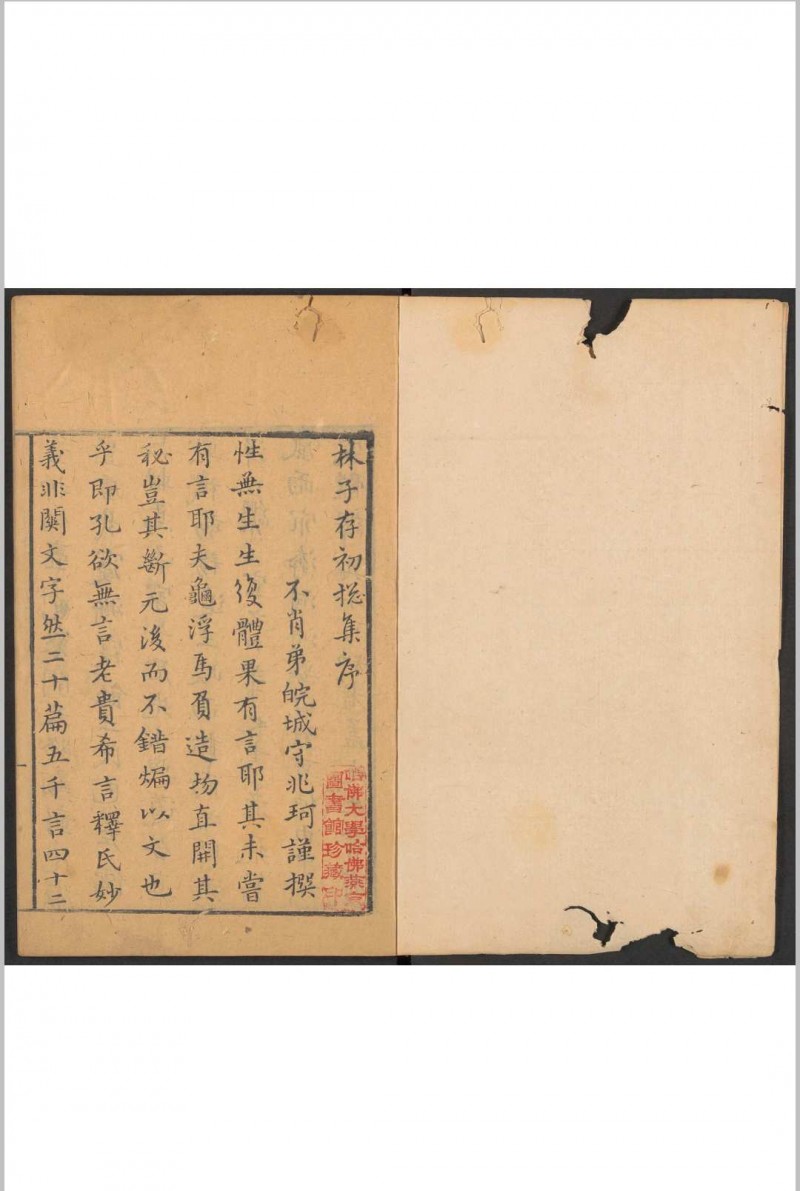 林子存初捴集序
不肖弟皖城守兆珂謹撰
性無生生復體果有言耶其未嘗
有言耶夫龜浮馬負造物直開其
秘豈其斷元浚而不錯煸以文也
乎即孔欲無言老貴希言釋氏妙
義非關文字然二十篇五千言四十二
哈佛大學哈佛燕京
圖書館珍藏印